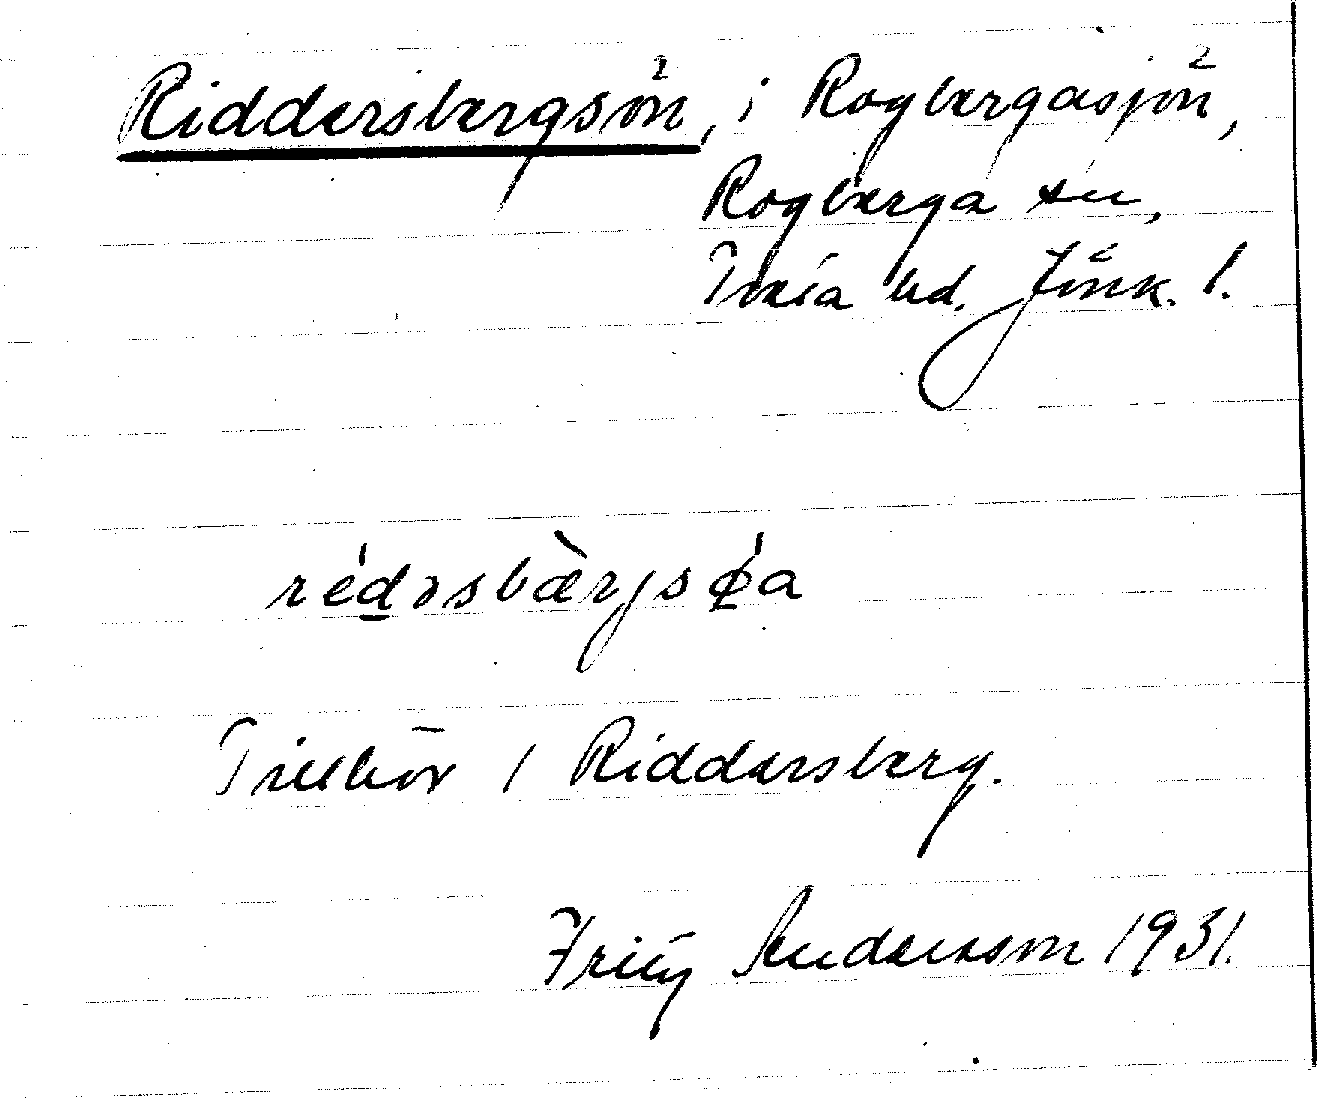 Riddersbergsön, i Rogbergasjön,
Rogberga sn,
Tveta hd. Jönk. l.
rédəsbærjsøa
Tillhör Riddersberg.
Fritz Andersson 1931.